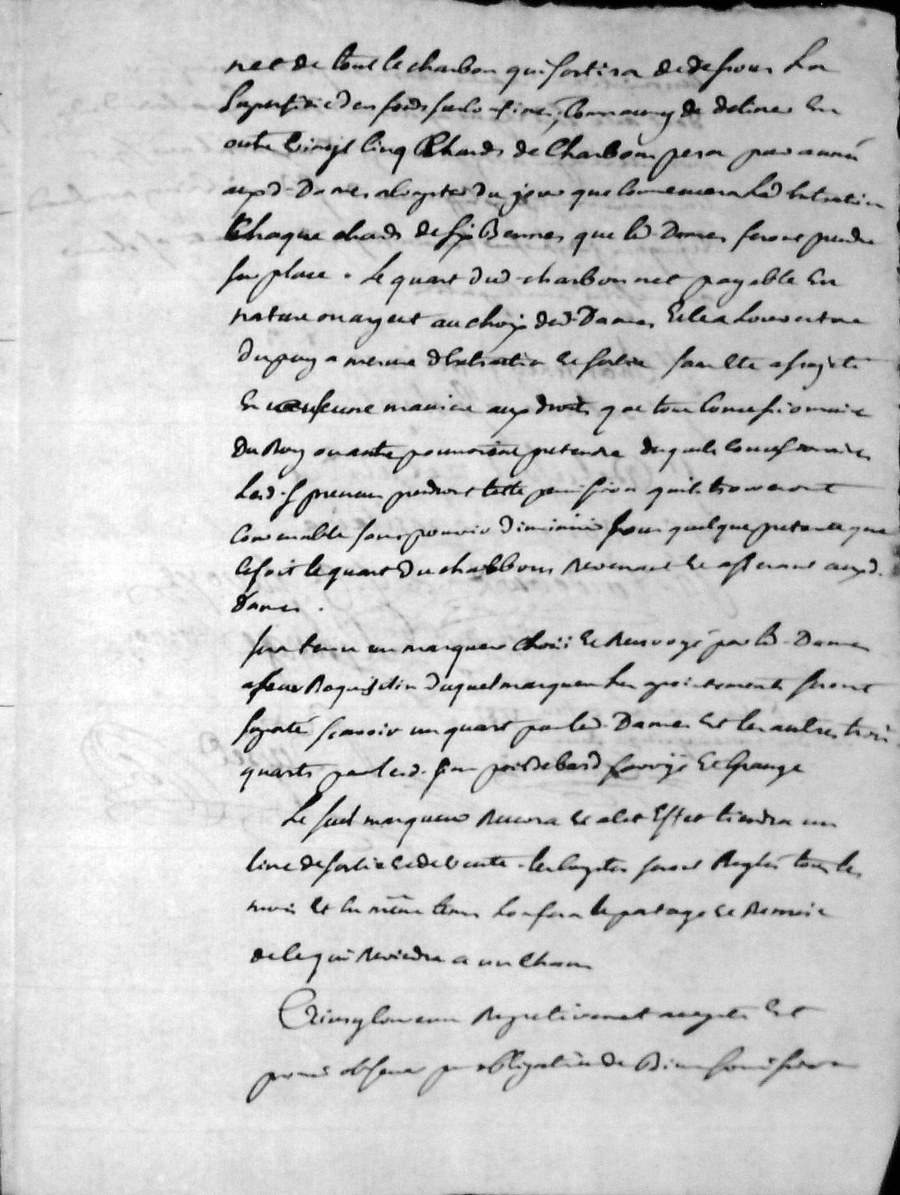 net de tout le charbon qui sortira de dessous la
superficie des fonds sus confinés, Comme aussy de delivrer En
outre vingt Cinq Chards de Charbon pera par année
auxd. Dames a compter du jour que Commencera lad. Extraction
Chaque chards de six Bennes que lesd. Dames feront prendre
sur place. Le quart dud. charbon net payable En
nature ou argent au choix desd. Dames Et la Louverture
du puy a mesure d'Extraction Et sortie sans Etre assujeti
En aucune maniere aux droits que tous Concessionnaire
Du Roy ou autre pourroient pretendre duquels Concessionnaires
Lesd. Srs preneurs prendront telle permission qu'ils trouveront
Convenable sans pouvoir diminuer sous quelque pretexte que
ce soit le quart du charbons Revenant Et afferant auxd.
Dames.
sera tenu un marqueur choisi Et Renvoyé par lesd. Dames
a leur Requisition duquel marqueur les apointements seront
suporté scavoir un quart par lesd. Dames Et les autres trois
quarts par lesd. Srs poidebard Et Grange
Le susd. marqueur aura Et a cet Effet tiendra un
livre de sortie Et de vente. les comptes seront Reglés tous les
mois Et En même tems Lon fera le partage Et Remise
de ce qui Reviendra a un Chacun
Ainsy convenu Respectivement accepté Et
promis observer par obligation de Biens soumissions